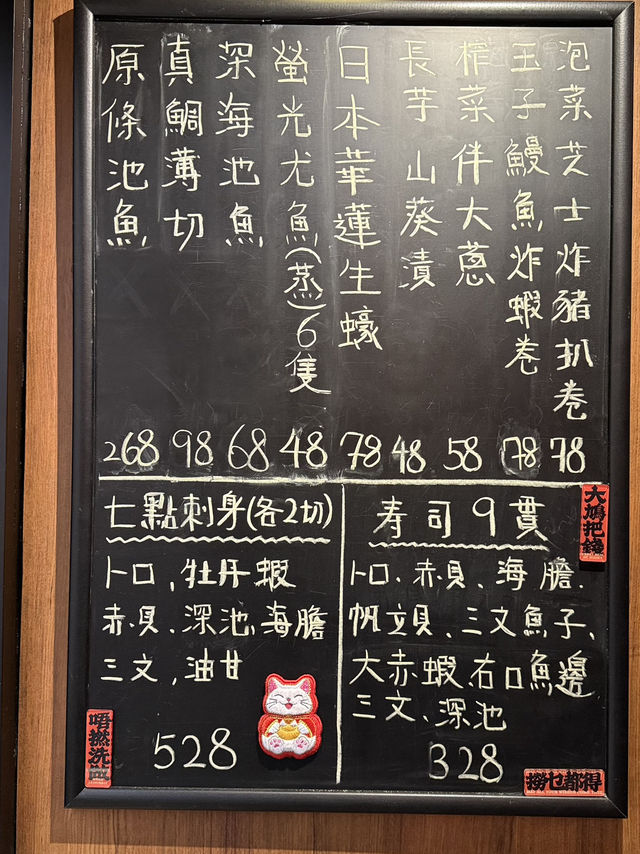 泡菜芝士炸豬扒卷 78
玉子鰻魚炸蝦卷 78
榨菜伴大蔥 58
長芋山葵漬 48
日本華蓮生蠔 78
螢光尤魚(蒸)6隻 48
深海池魚 68
真鯛薄切 98
原條池魚 268
七點刺身(各2切)
トロ,牡丹蝦
赤貝、深池、海膽
三文,油甘
528
唔撚洗
寿司9貫
トロ、赤貝、海膽、
帆立貝、三文魚子、
大赤蝦、右口魚邊
三文、深池
328
大鳩把錢
撈乜都得